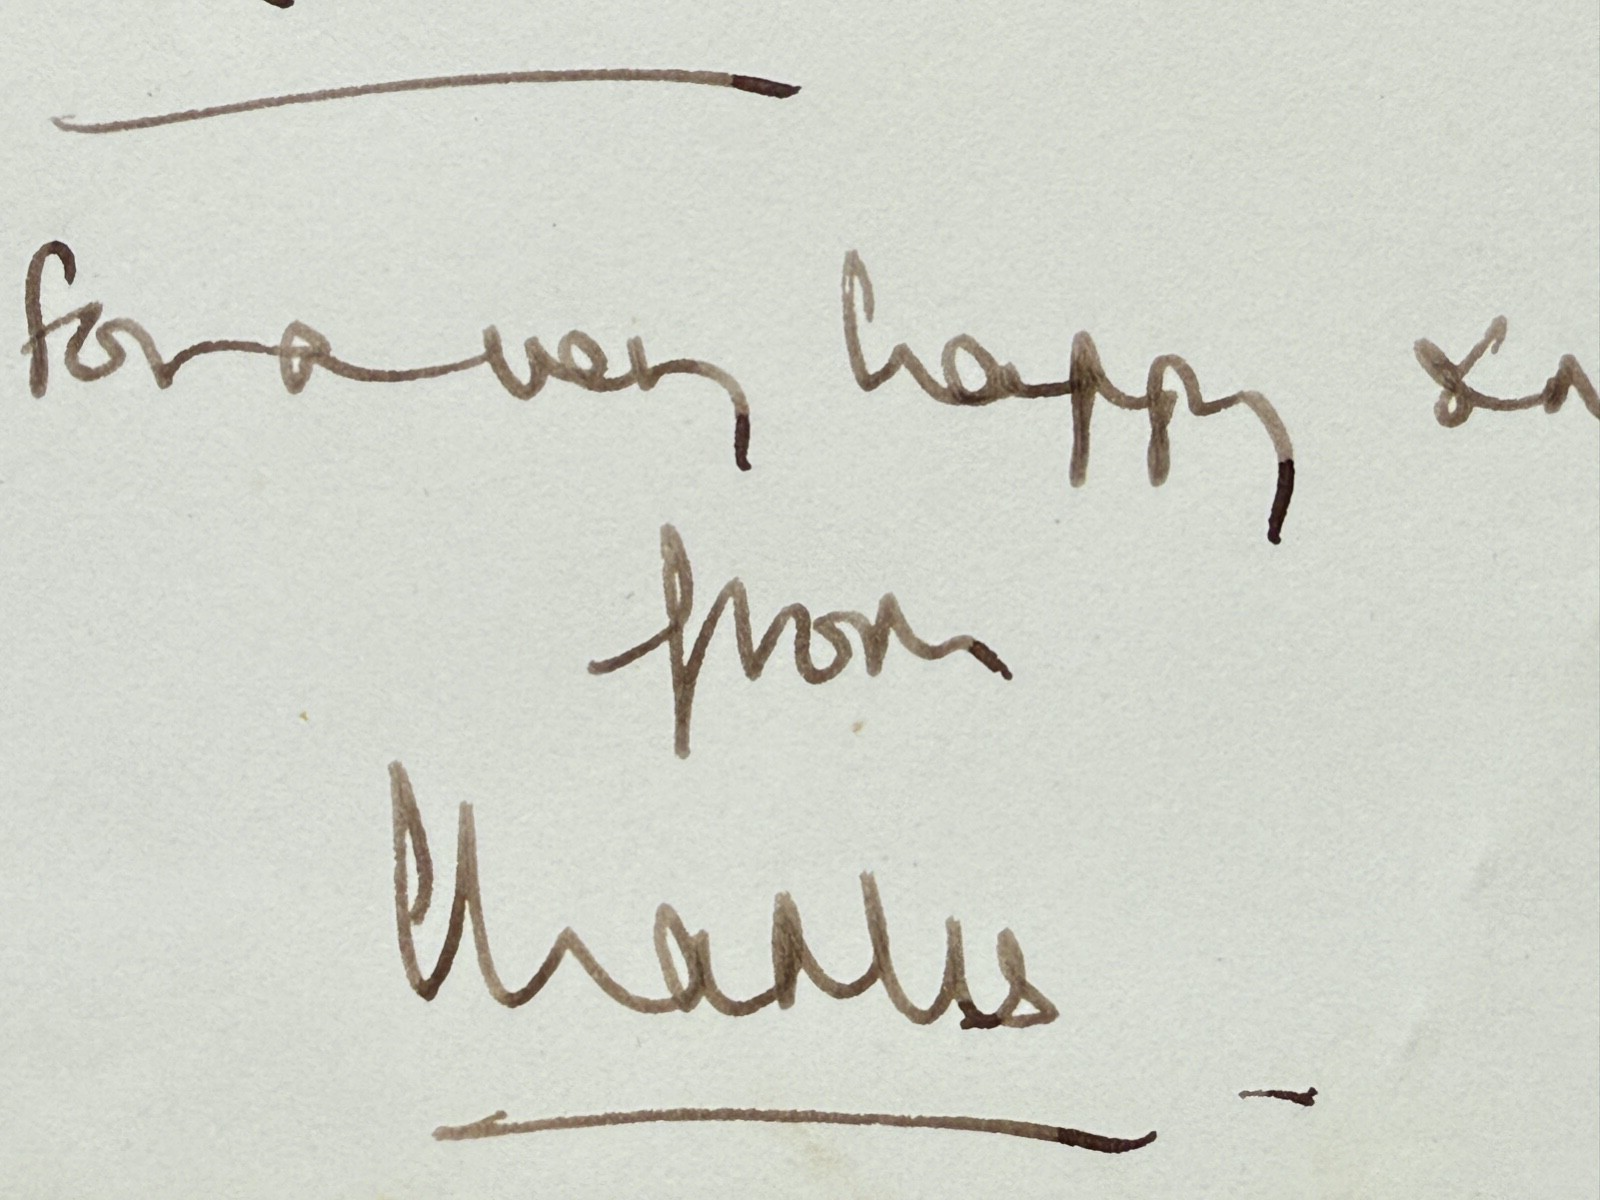 for a very happy
from
Charles